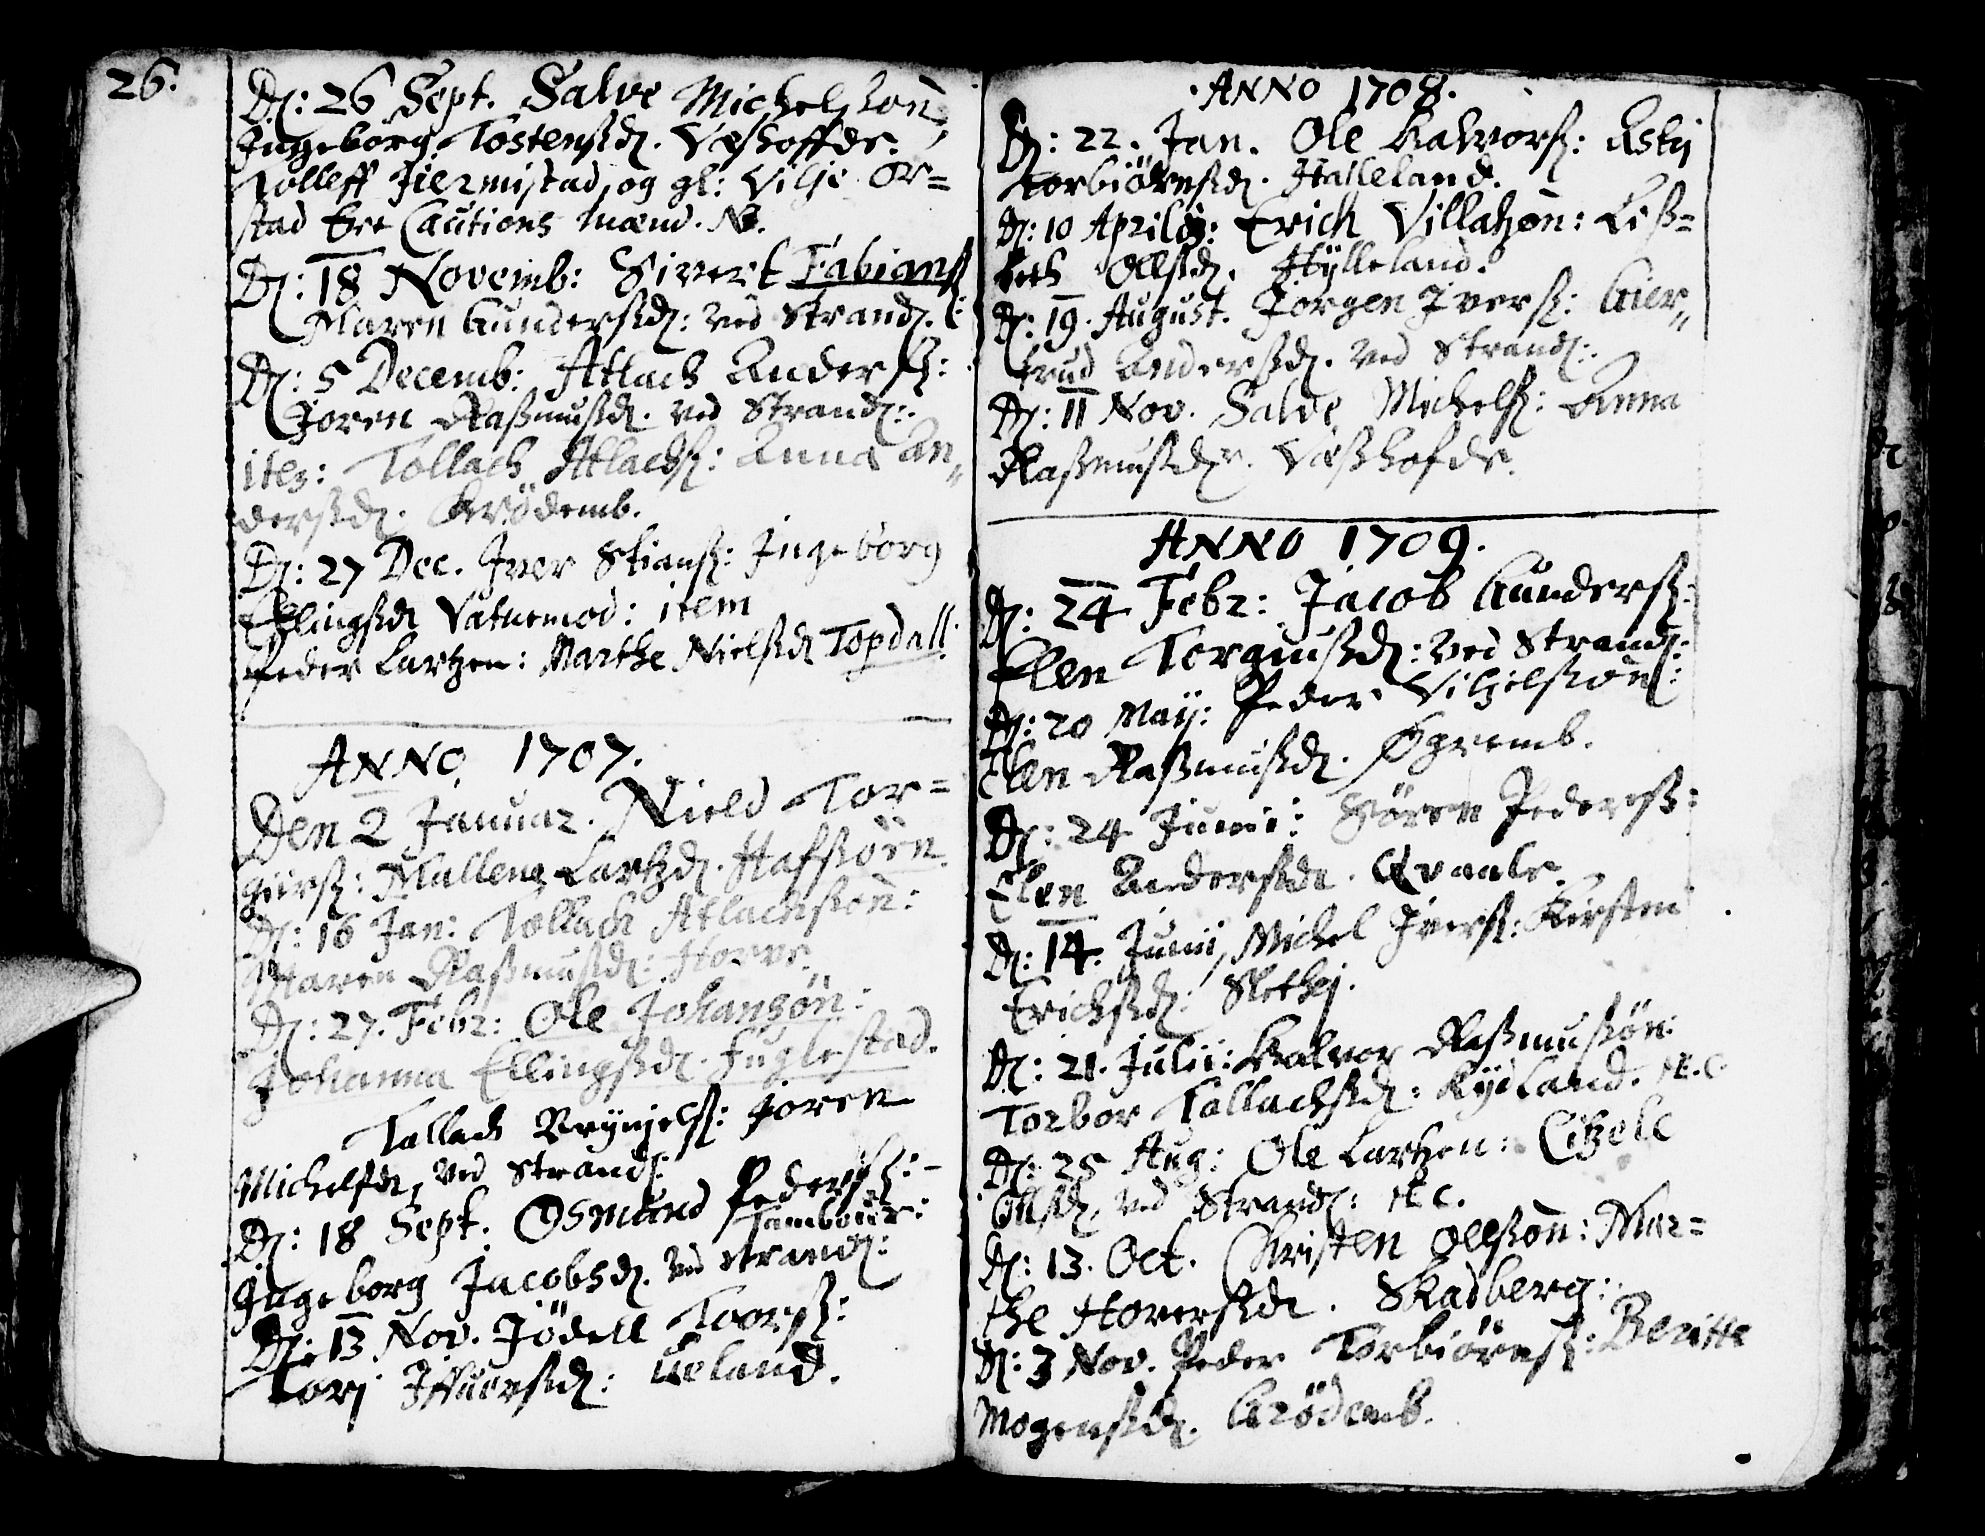 26.
D: 26 Sept. Salve Michelsson,
Ingeborg Tostensd. Væshoffde.
Tolleff Jiermistad, og gl: Vilje Or=
stad Ere Cautions mænd. NB.
D: 18 Novemb: Sivert Fabianss
Maren Gundersd: Ved Strand.
D: 5 Decemb: Atlach Anderss:
Joren Rasmusd. ved Strand:
item: Tollach Atlachs: Anna An„
dersd. Grödemb.
D: 27 Dec. Iver Stians: Ingeborg
Ellingsd Vatnemod: item
Peder Lartzen: Marthe Nielsd Topdall.
ANNO 1707.
Den 2 Januar. Niels Tor=
giers: Mallene Lartzd. Hafsöen.
D: 16 Jan: Tollach Atlachssön:
Maren Rasmusd: Horve.
D: 27. Febr: Ole Johansön:
Johanna Ellingsd. Fuglestad.
Tallach Brynjels: Joren
Michelsd, ved Strand:
D: 18 Sept. Osmund Peders: -
Tambour:
Ingeborg Jacobsd. ved strand:
D: 13 Nov. Jödell Toors:
Tori Iffuersd: Ueland.
ANNO 1708.
D: 22. Jan. Ole Halvors: Asly
Torbiörnsd. Hälleland.
D: 10 Aprilis: Erich Villatzön: Liß=
beth Ollsd. Hÿlleland.
D: 19. August. Jörgen Ivers: Gier„
trud Andersd. ved Strand:
D: 11 Nov. Salve Michels: Anna
Rasmusd. Væshofde.
ANNO 1709.
D: 24 Febr: Jacob Gunders:
Elen Torgiusd: ved Strand:
D: 20 Maij: Peder Viljelssön:
Elen Rasmusd. Øgremb.
D: 24 Junii: Sören Peders:
Elen Andersd. Qvaale.
D: 14. Junii, Michel Ivers: Kirsten
Erichsd: Slethej.
D: 21. Julii: Halvor Rasmussön:
Torbor Tallachsd: Kÿdland. etc.
D: 25 Aug: Ole Lartzen: Citzele
Ollsd, ved Strand: etc.
D: 13. Oct. Christen Ollssön: Mar=
the Hoversd. Skadberg:
D: 3 Nov. Peder Torbiörns: Beritte
Mogensd. Grödemb.